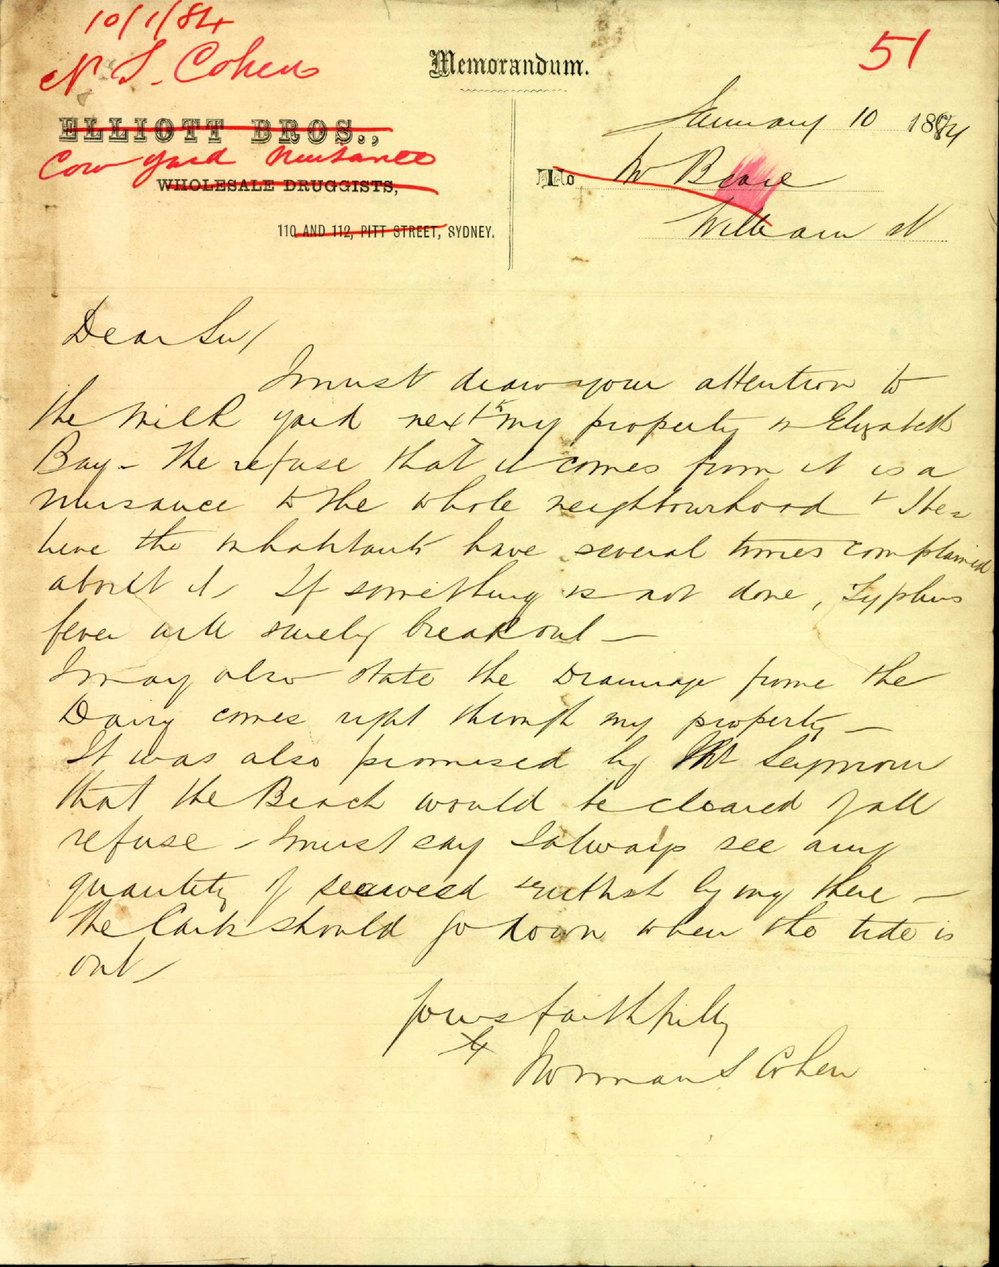 10/1/84
N S. Cohen
51
Memorandum.
ELLIOTT BROS.,
Cow yard Nuisance
WHOLESALE DRUGGISTS,
110 AND 112, PITT STREET, SYDNEY.
January 10 1884
To Mr
William St
Dear Sir/
I must draw your attention to
the Milk yard next my property in Elizabeth
Bay - The refuse that it comes from it is a
nuisance to the whole neighbourhood &
the inhabitants have several times complained
about it If something is not done, Typhus
fever will surely break out -
I may also state the Drainage frome the
Dairy comes right through my property -
It was also promised by Mr Seymour
that the Beach would be cleared of all
refuse - I must say I always see any
quantity of seaweed & lying there -
the Cart should go down when the tide is
out
Yours faithfully
Norman S Cohen